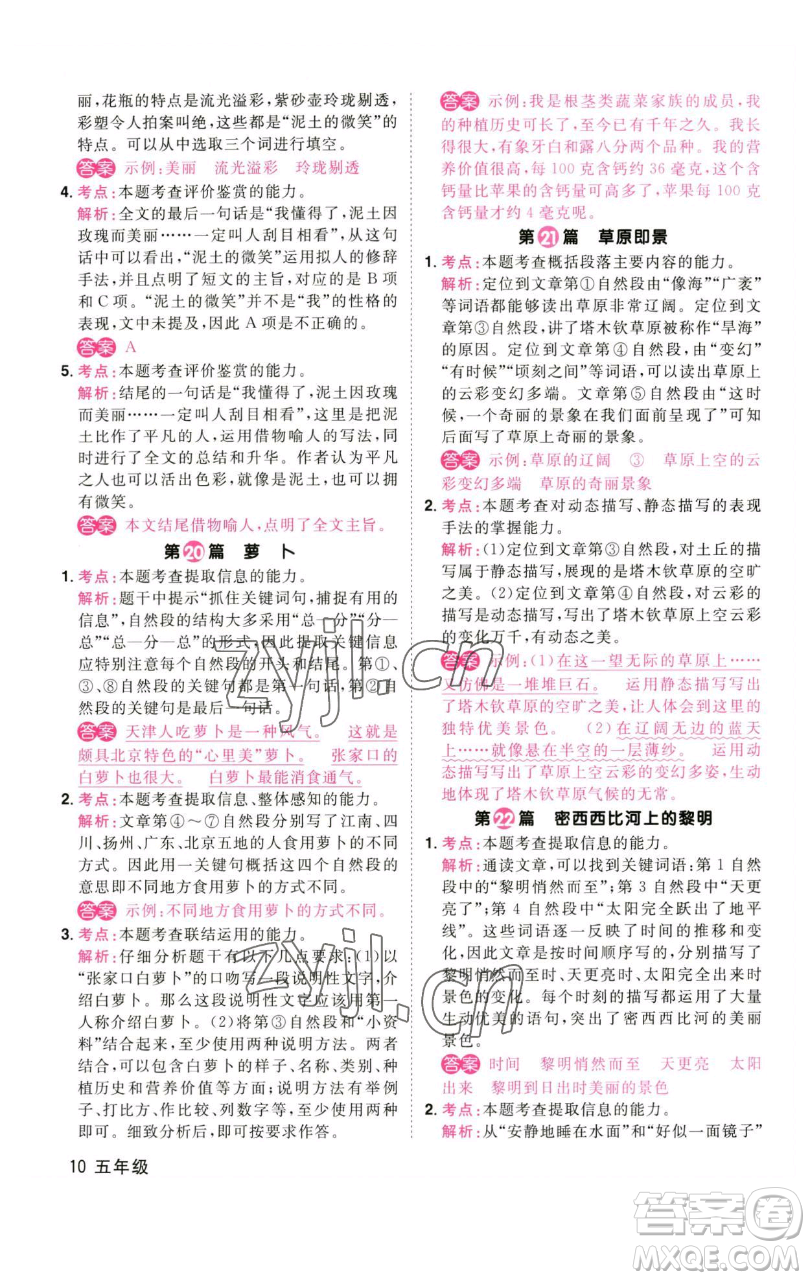 丽，花瓶的特点是流光溢彩，紫砂壶玲珑剔透，
彩塑令人拍案叫绝，这些都是“泥土的微笑”的
特点。可以从中选取三个词进行填空。
答案 示例：美丽 流光溢彩 玲珑剔透
4. 考点：本题考查评价鉴赏的能力。
解析：全文的最后一句话是“我懂得了，泥土因
玫瑰而美丽……一定叫人刮目相看”，从这句
话中可以看出，“泥土的微笑”运用拟人的修辞
手法，并揭示了短文的主旨，对应的是 B 项
和 C 项。“泥土的微笑”并不是“我”的性格的
表现，文中未提及，因此 A 项是不正确的。
答案 A
5. 考点：本题考查评价鉴赏的能力。
解析：结尾的一句话是“我懂得了，泥土因玫瑰
而美丽……一定叫人刮目相看”，这句话把泥
土比作了平凡的人，运用借物喻人的写法，同
时进行了全文的总结和升华。作者认为平凡
之人，也能在生活中活出色彩，泥土也可以拥
有微笑。
答案 本文结尾借物喻人，点明了全文主旨。
第20篇 萝卜
1. 考点：本题考查提取信息的能力。
解析：题干中提示“抓住关键词句，捕捉有用的
信息”，自然段的结构大多采用“总—分”“分—
总”“总—分—总”的形式，因此提取关键信息
应特别注意每个自然段的开头和结尾。第①、
③、⑧自然段的关键句都是第一句话，第②自
然段的关键句是最后一句话。
答案 天津人吃萝卜是一种风气。 这就是
颇具北京特色的“心里美”萝卜。 张家口的
白萝卜也很大。 白萝卜最能消食通气。
2. 考点：本题考查提取信息、整体感知的能力。
解析：文章第④～⑦自然段分别写出了江南、四
川、扬州、广东、北京五地的人食用萝卜的不同
方式。因此用一关键句概括这四个自然段的
意思即不同地方食用萝卜的方式不同。
答案 示例：不同地方食用萝卜的方式不同。
3. 考点：本题考查联结运用的能力。
解析：仔细分析题干有以下几点要求：(1)以
“张家口白萝卜”的口吻写一段说明性文字，介
绍白萝卜。因此这段说明性文字应使用第一
人称介绍白萝卜。(2)将第③自然段和“小资
料”结合起来，至少写出白萝卜的两个特点。
结合两者可以从白萝卜的样子、名称、类别、种
植历史和营养价值等方面写。(3)使用列举
例子、打比方、作比较、列数字等说明方法中的
两种即可。细致分析后，根据要求作答。
10 五年级
答案 示例：我是根茎类蔬菜家族的成员，我
的种植历史可长了，至今已有千年之久。我长
得很大，有象牙白和露八分两个品种。我的营
养价值很高，每 100 克含钙约 36 毫克，这个含
钙量比苹果的含钙量可高多了，苹果每 100 克
含钙量才约 4 毫克呢。
第21篇 草原即景
1. 考点：本题考查概括段落主要内容的能力。
解析：定位到文章第①自然段由“像海”“广袤”
等词语都能够读出草原非常辽阔。定位到文
章第③自然段，讲了塔木钦草原被称作“旱海”
的原因。定位到文章第④自然段，由“变幻”
“有时候”“顷刻之间”等词语，可以读出草原上
的云彩变幻多端。文章第⑤自然段由“这时
候，一个奇丽的景象在我们眼前展开了”可知
后面写了草原上奇丽的景象。
答案 示例：草原的辽阔 ③ 草原上空的云
彩变幻多端 草原的奇丽景象
2. 考点：本题考查对动态描写、静态描写的表现
手法的掌握能力。
解析：(1)定位到文章第②自然段，对土丘的描
写属于静态描写，展现的是塔木钦草原的空旷
之美。(2)定位到文章第④自然段，对云彩的
描写是动态描写，写出了塔木钦草原上空云彩
的变化万千，有灵动之美。
答案 示例：(1)在这一望无际的草原上……
又仿佛是一堆堆巨石。 运用静态描写写出
了塔木钦草原的空旷之美，让人体会到这里的
独特优美景色。 (2)在辽阔无边的蓝天
上……就像悬在半空的一层薄纱。 运用动
态描写写出了草原上空云彩的变幻多姿，生动
地写出了塔木钦草原气候的无常。
第22篇 密西西比河上的黎明
1. 考点：本题考查提取信息的能力。
解析：通读文章，可以找出关键词语：第 1 自然
段中的“黎明悄然而至”；第 2 自然段中“天更
亮了”；第 4 自然段中“太阳完全跃出了地平
线”。这些关键词语一一反映了时间的推移和
变化。文章是按时间顺序写的，分别描写了
黎明悄然而至时、天更亮时、太阳完全出来时
景色的变化。每个时刻的描写都运用了大量
生动优美的语句，突出了密西西比河的美丽
景色。
答案 时间 黎明悄然而至 天更亮 太阳
出来 黎明到日出时美丽的景色
2. 考点：本题考查提取信息的能力。
解析：从“安静地睡在水面”和“好似一面镜子”
zyjl.cn
zyjl.cn
答案圈
MXQE.COM